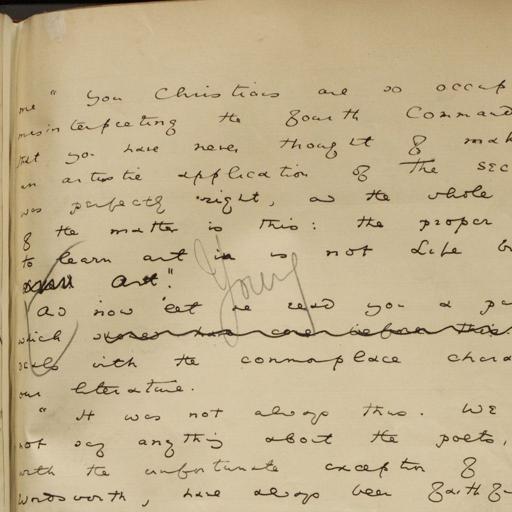 me " you Christians are so occup
misinterpreting the fourth Command
that you have never thought of mak
an artistic application of the sec
was perfectly right, as the whole
of the matter is this: the proper
to learn art in is not Life b
Art."
"As now let me read you a pa
which does not come before this
deals with the commonplace chara
our literature.
"It was not always thus. We
not say anything about the poets,
with the unfortunate exception of
Wordsworth, have always been faithfu